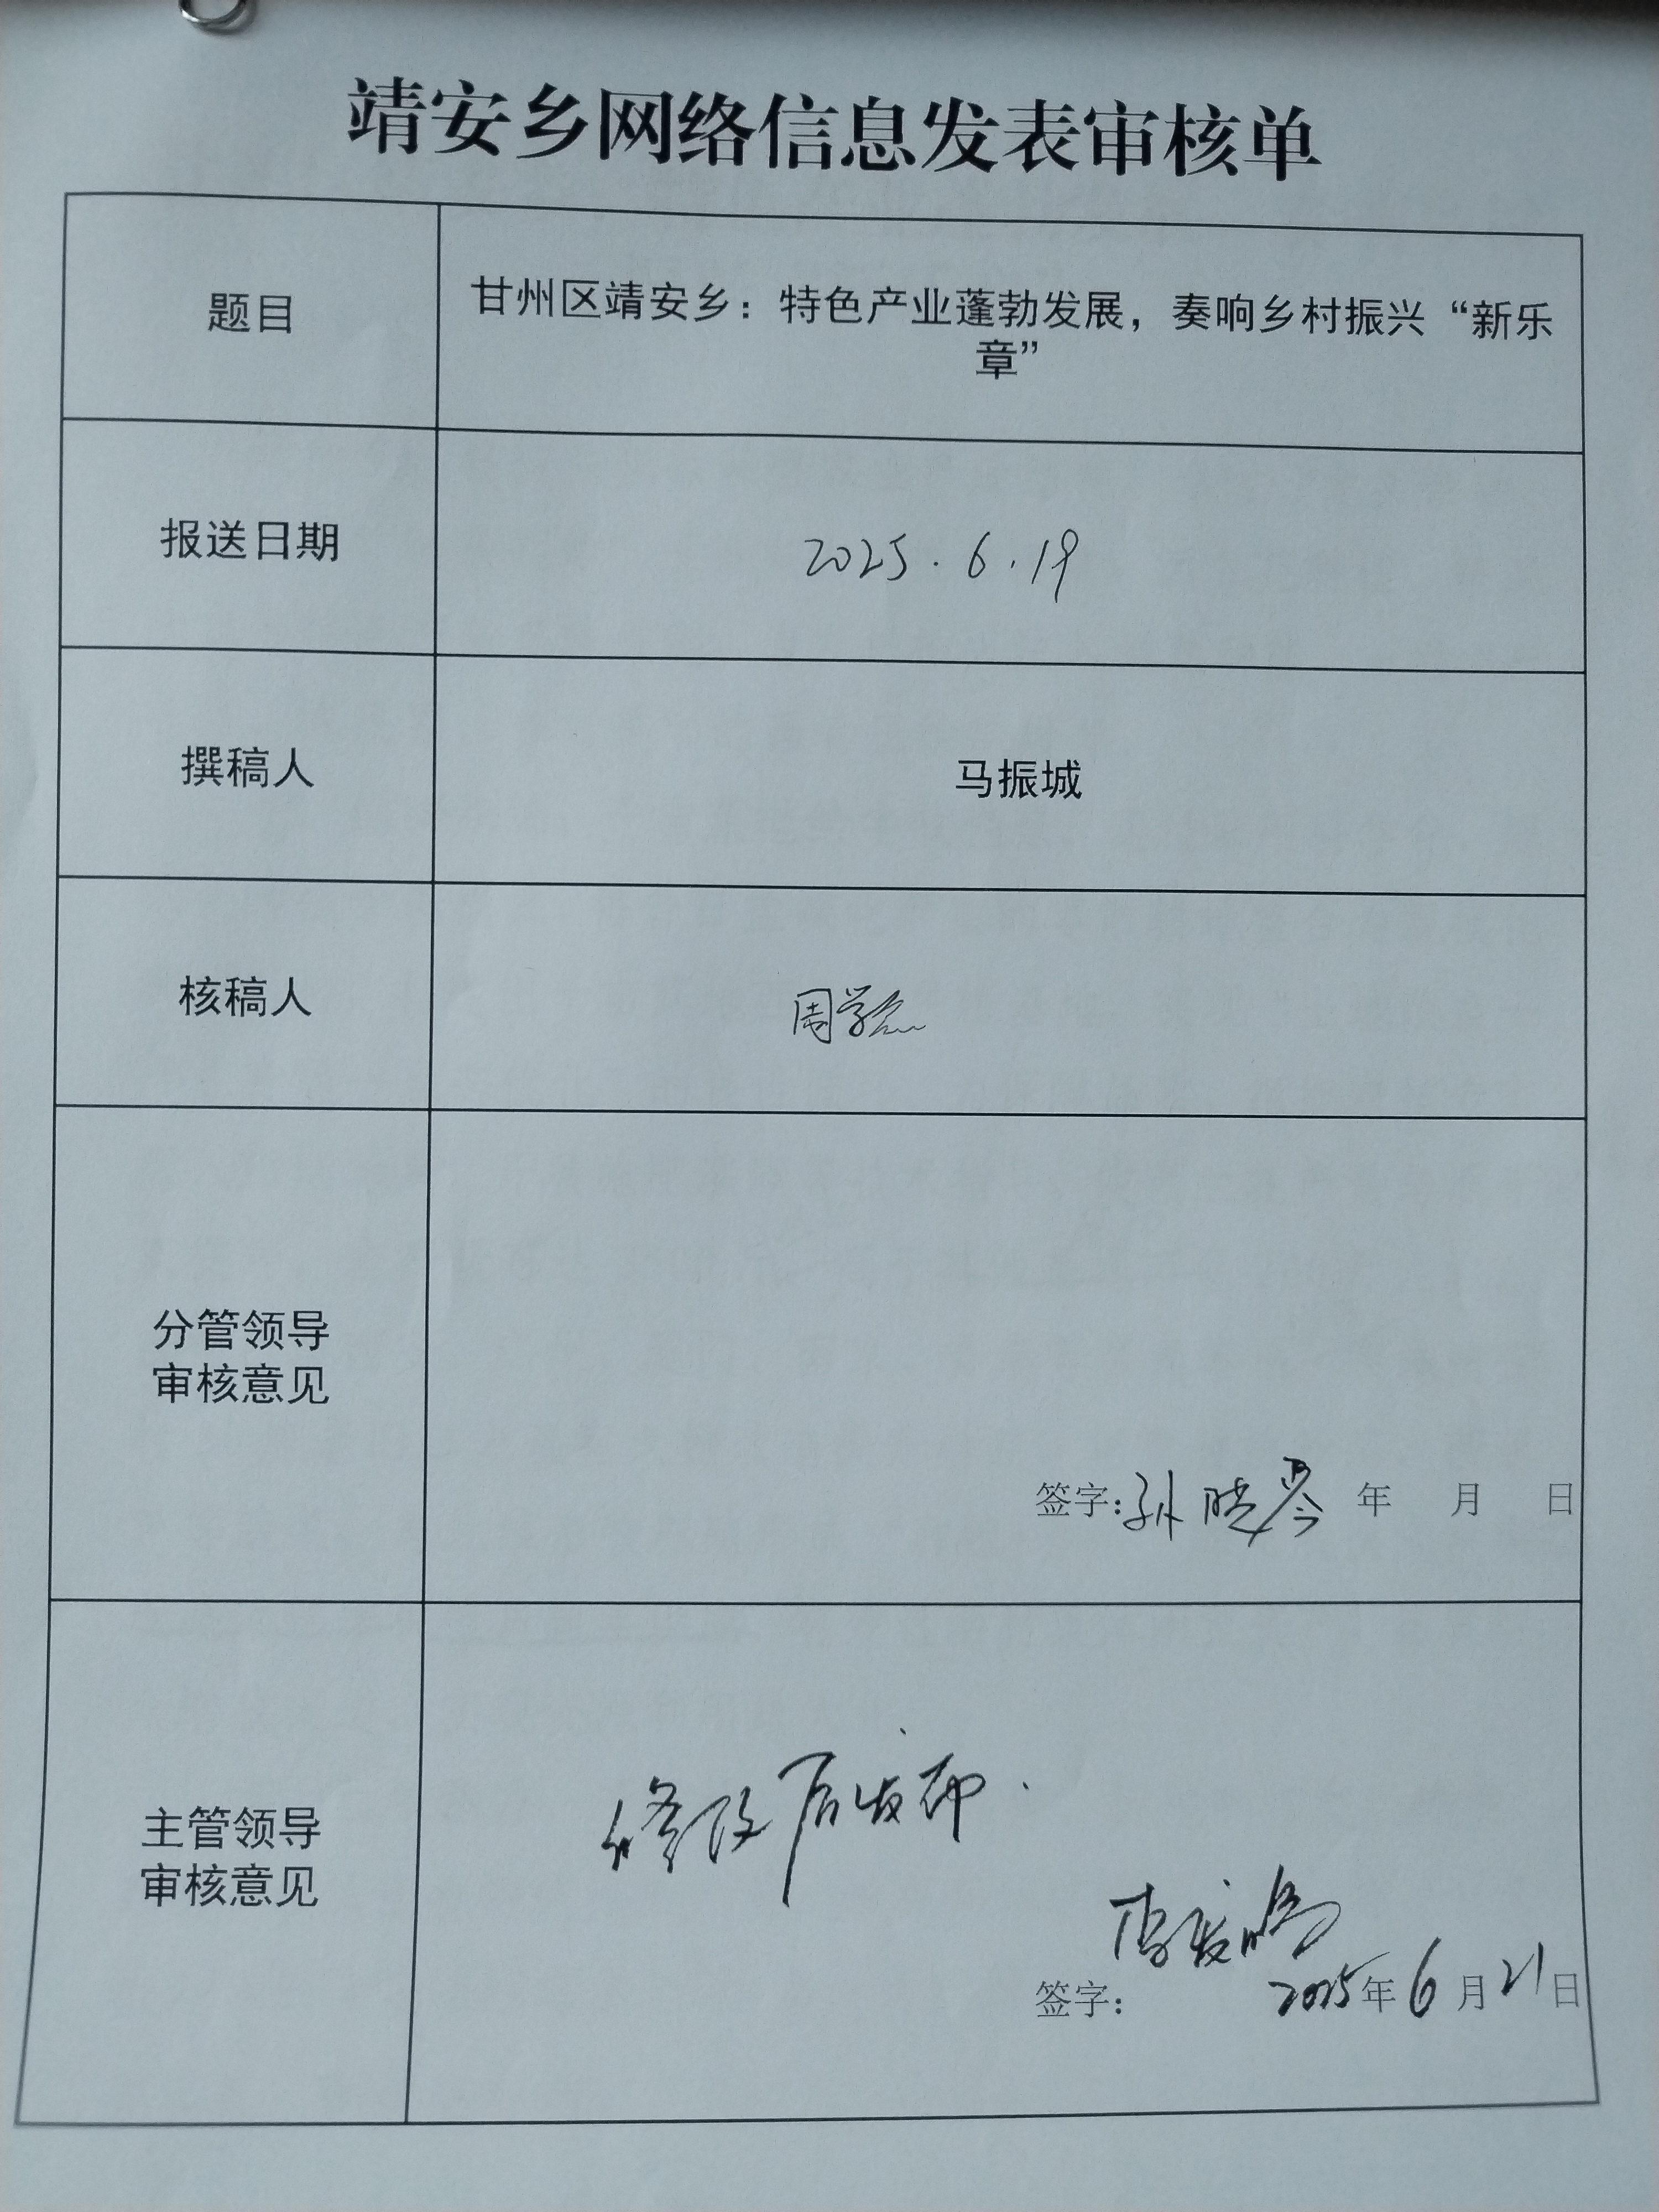 靖安乡网络信息发表审核单
题目
甘州区靖安乡：特色产业蓬勃发展，奏响乡村振兴“新乐
章”
报送日期
2025.6.19
撰稿人
马振城
核稿人
周学
分管领导
审核意见
签字：孙晓琴 年 月 日
主管领导
审核意见
修改后发布.
李
签字： 2025年6月21日